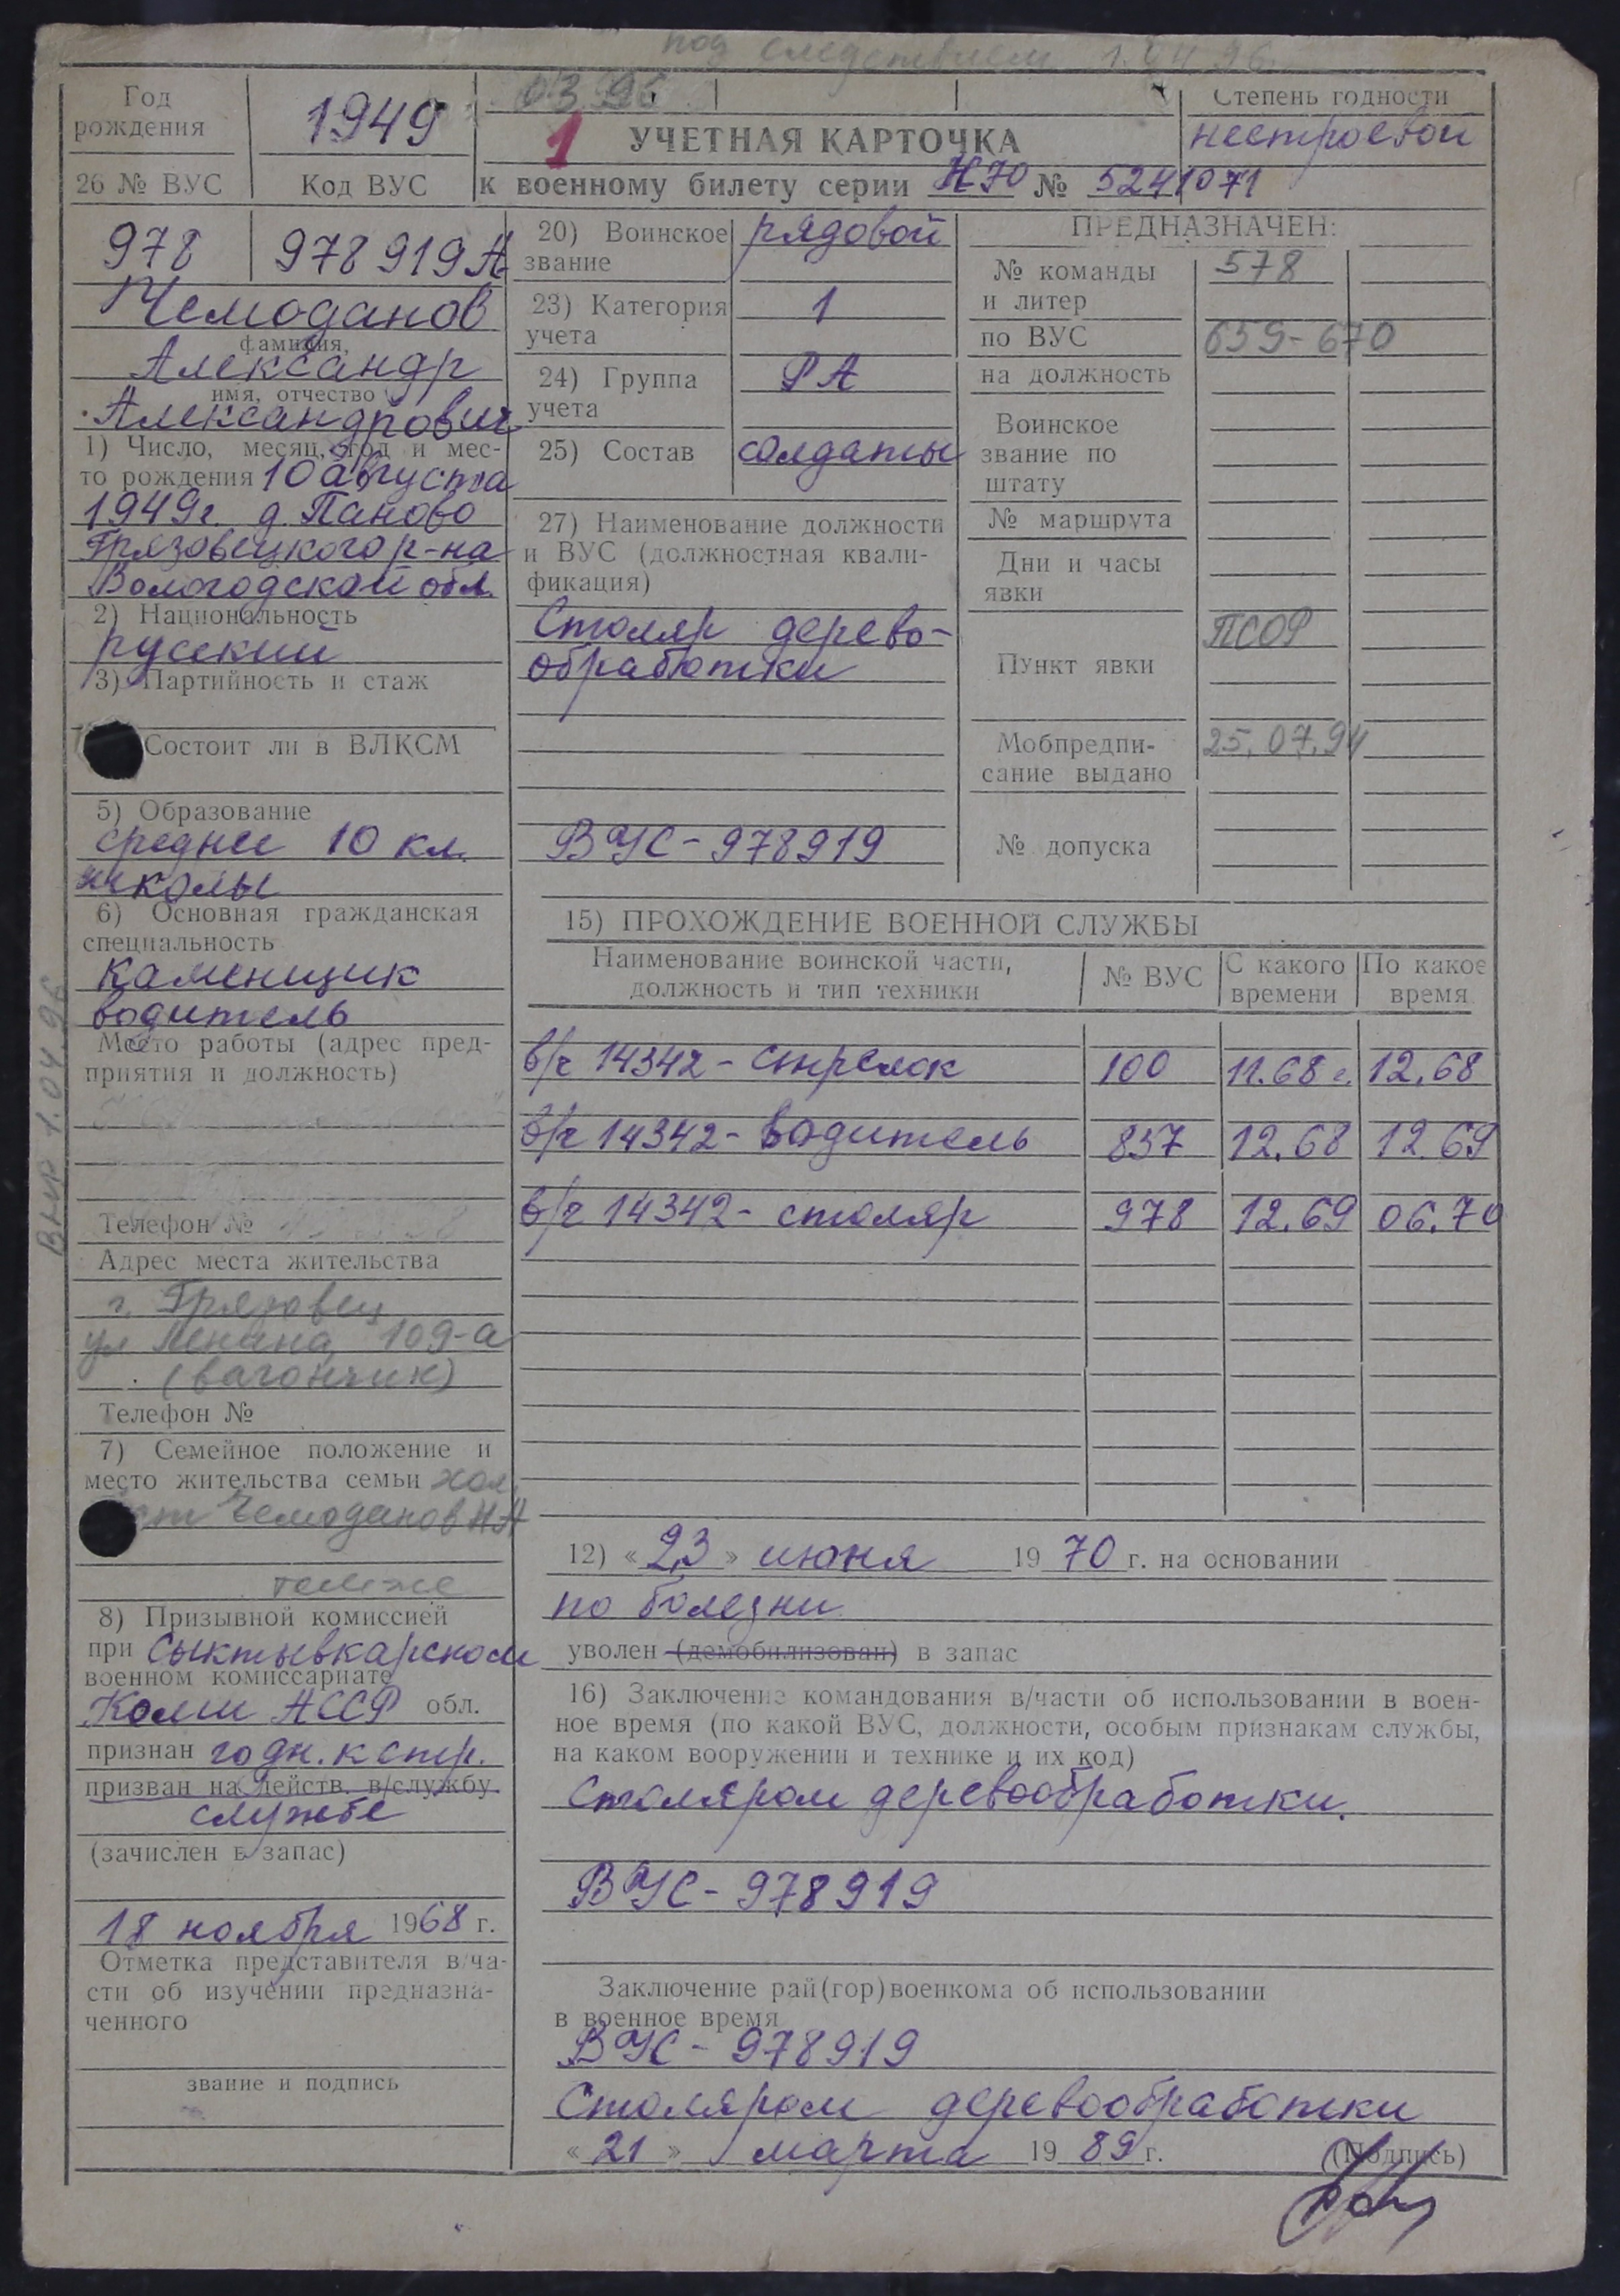 под следствием 1.04.96
03.95
Год рождения
1949
1
УЧЕТНАЯ КАРТОЧКА
к военному билету серии НЯО № 5241071
Степень годности
нестроевой
26 № ВУС
Код ВУС
978
978919А
Чемоданов
фамилия,
Александр
имя, отчество
Александрович
1) Число, месяц, год и мес-
то рождения 10 августа
1949г. д. Паново
Грязовецкого р-на
Вологодской обл.
2) Национальность
русский
3) Партийность и стаж
Состоит ли в ВЛКСМ
5) Образование
среднее 10 кл.
школы
6) Основная гражданская
специальность
каменщик
водитель
Место работы (адрес пред-
приятия и должность)
Телефон №
Адрес места жительства
г. Грязовец
ул Ленина, 109-а
(вагончик)
Телефон №
7) Семейное положение и
место жительства семьи хол
ост Чемоданов Н А
там же
8) Призывной комиссией
при Сыктывкарском
военном комиссариате
Коми АССР обл.
признан годн. к стр.
призван на действ. в/службу
службе
(зачислен в запас)
18 ноября 1968 г.
Отметка представителя в/ча-
сти об изучении предназна-
ченного
звание и подпись
ВНР 1.04.96
20) Воинское звание
рядовой
23) Категория учета
1
24) Группа учета
РА
25) Состав
солдаты
27) Наименование должности
и ВУС (должностная квали-
фикация)
Столяр дерево-
обработки
ВУС-978919
ПРЕДНАЗНАЧЕН:
№ команды и литер
578
по ВУС
659-670
на должность
Воинское звание по штату
№ маршрута
Дни и часы явки
Пункт явки
ПСОР
Мобпредпи-
сание выдано
25.07.94
№ допуска
15) ПРОХОЖДЕНИЕ ВОЕННОЙ СЛУЖБЫ
Наименование воинской части, должность и тип техники
№ ВУС
С какого времени
По какое время
в/ч 14342 - стрелок 100 11.68 г. 12.68
в/ч 14342 - водитель 837 12.68 12.69
в/ч 14342 - столяр 978 12.69 06.70
12) « 23 » июня 19 70 г. на основании
по болезни
уволен (демобилизован) в запас
16) Заключение командования в/части об использовании в воен-
ное время (по какой ВУС, должности, особым признакам службы,
на каком вооружении и технике и их код)
Столяром деревообработки.
ВУС-978919
Заключение рай(гор)военкома об использовании
в военное время
ВУС - 978919
Столяром деревообработки
« 21 » марта 19 89 г.
(Подпись)